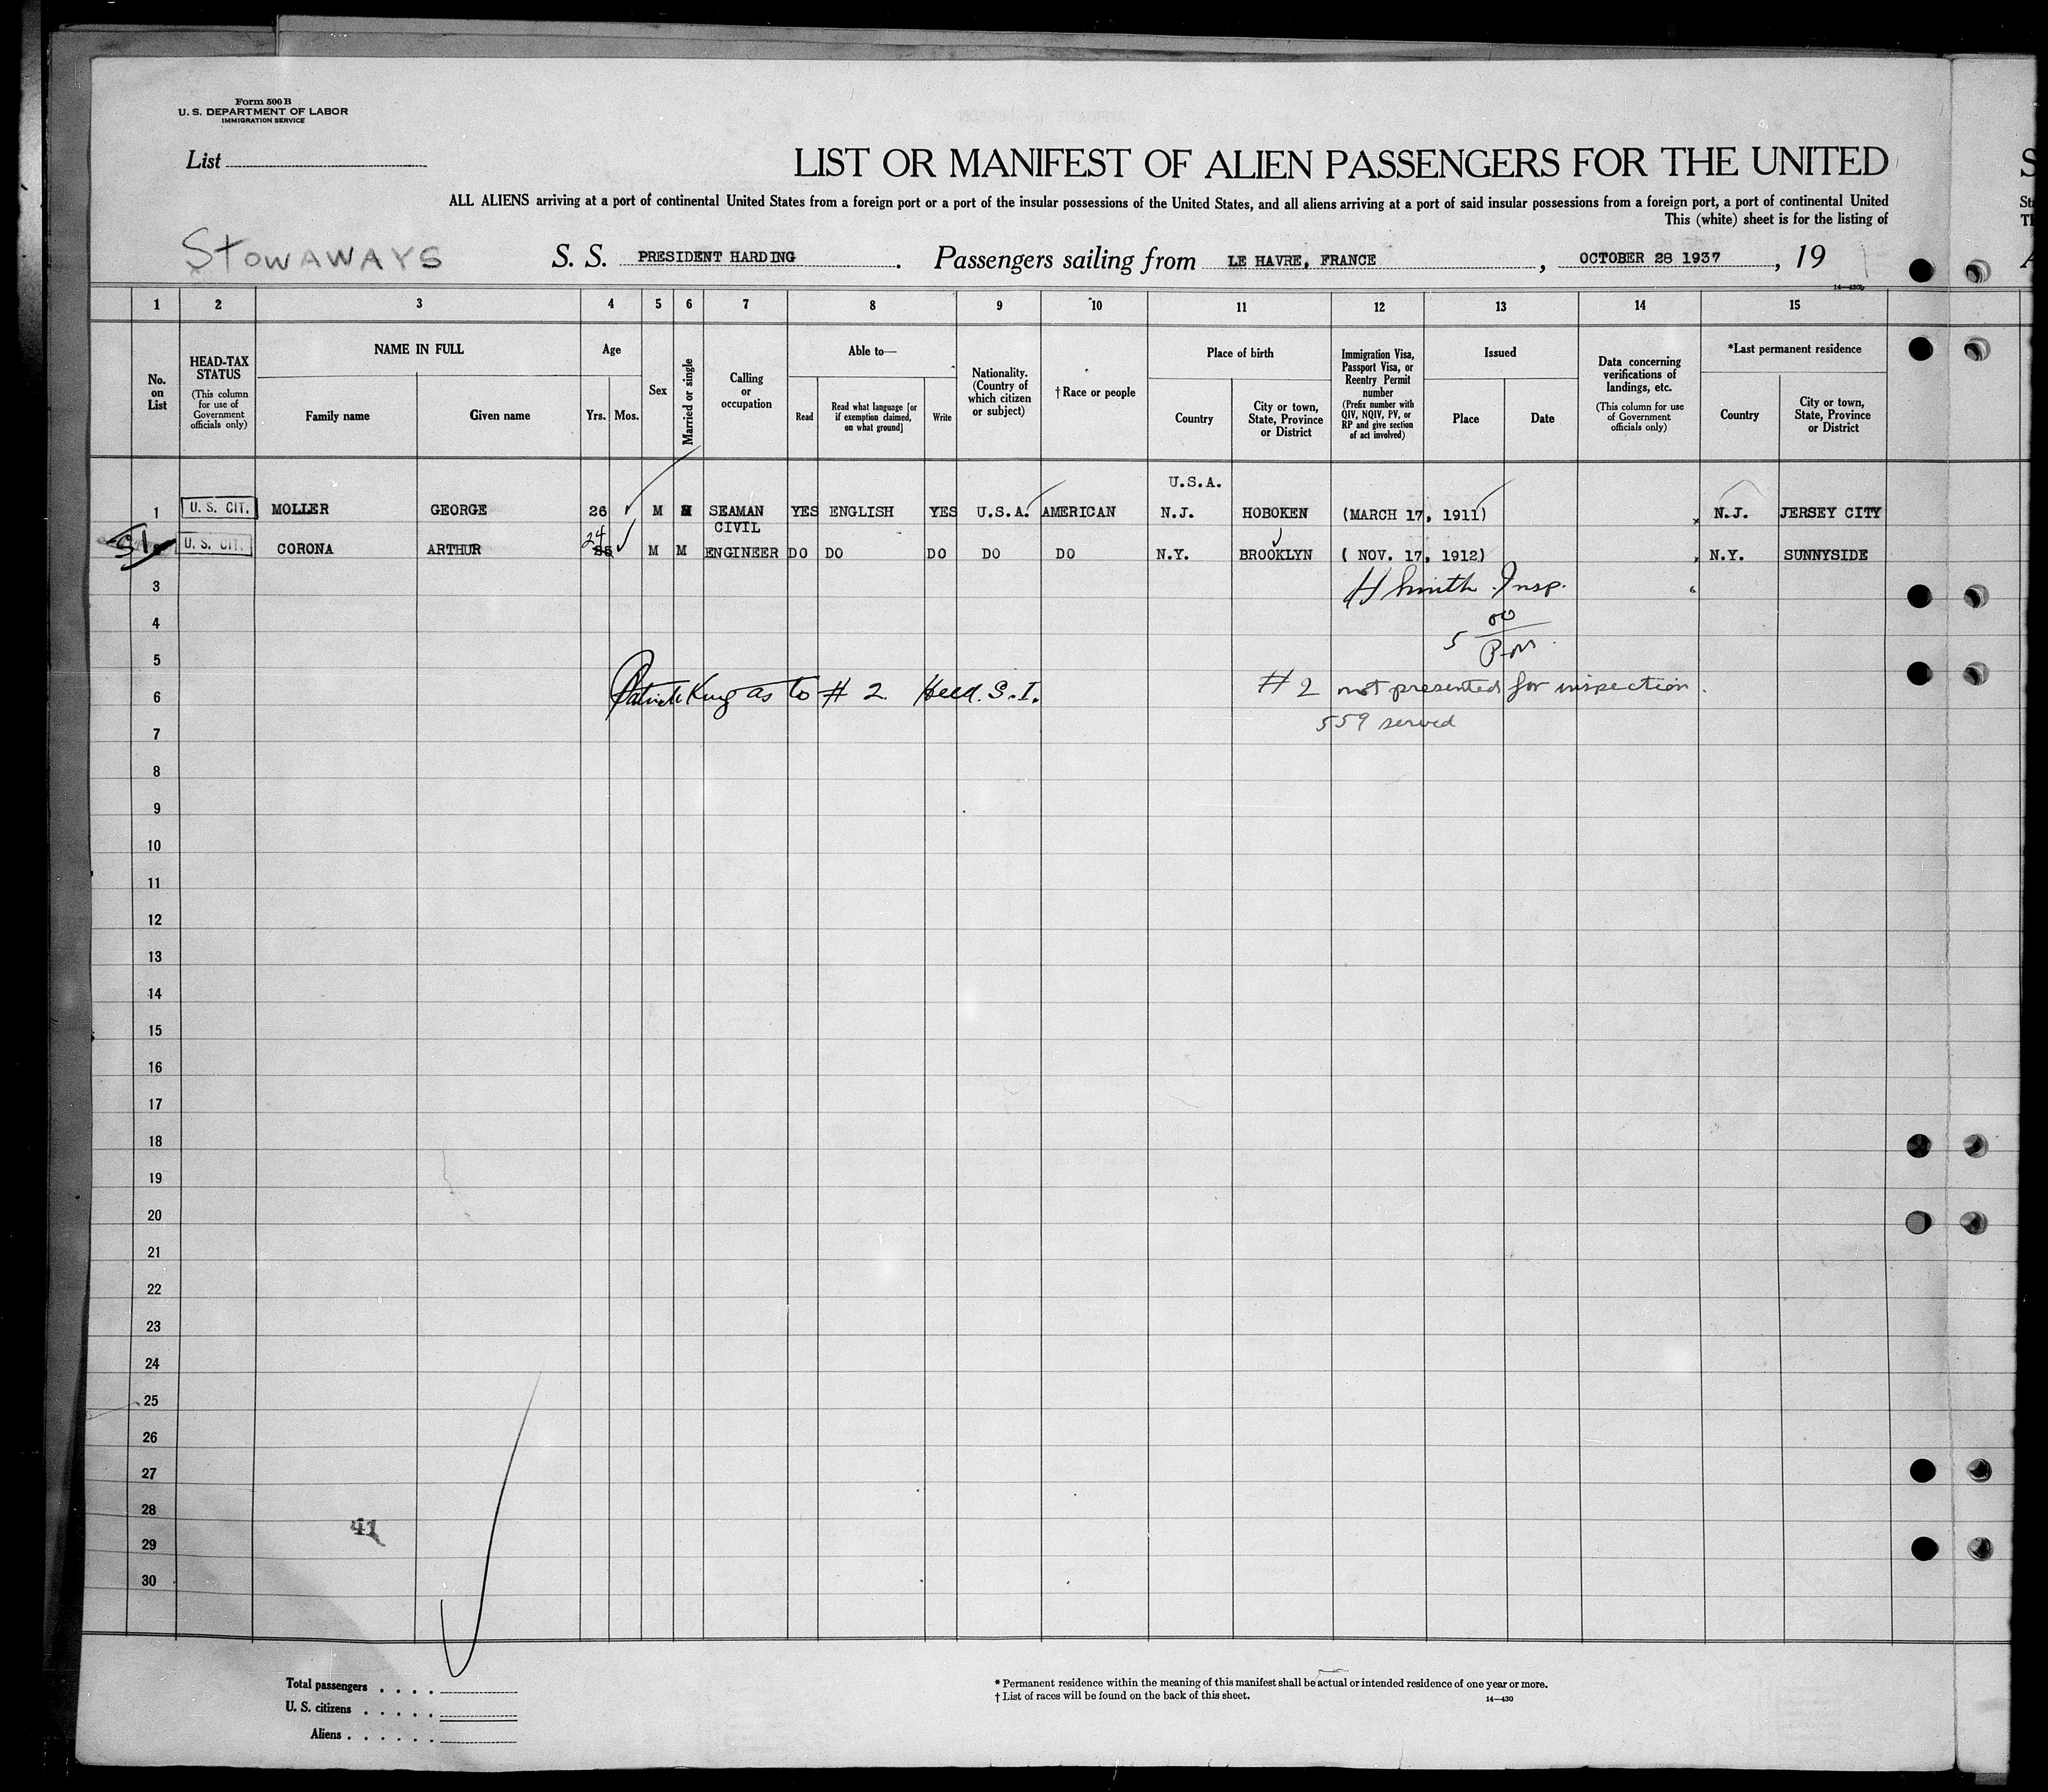 Form 500 B
U. S. DEPARTMENT OF LABOR
IMMIGRATION SERVICE
List
LIST OR MANIFEST OF ALIEN PASSENGERS FOR THE UNITED
ALL ALIENS arriving at a port of continental United States from a foreign port or a port of the insular possessions of the United States, and all aliens arriving at a port of said insular possessions from a foreign port, a port of continental United
This (white) sheet is for the listing of
STOWAWAYS S. S. PRESIDENT HARDING. Passengers sailing from LE HAVRE, FRANCE, OCTOBER 28 1937, 19
14—430b
1 2 3 4 5 6 7 8 9 10 11 12 13 14 15
No. on List
HEAD-TAX STATUS (This column for use of Government officials only)
NAME IN FULL
Family name Given name
Age
Yrs. Mos.
Sex
Married or single
Calling or occupation
Able to—
Read
Read what language [or if exemption claimed, on what ground]
Write
Nationality. (Country of which citizen or subject)
†Race or people
Place of birth
Country
City or town, State, Province or District
Immigration Visa, Passport Visa, or Reentry Permit number (Prefix number with QIV, NQIV, PV, or RP and give section of act involved)
Issued
Place Date
Data concerning verifications of landings, etc. (This column for use of Government officials only)
*Last permanent residence
Country
City or town, State, Province or District
U.S.A.
1 U. S. CIT. MOLLER GEORGE 26 M SEAMAN YES ENGLISH YES U.S.A. AMERICAN N.J. HOBOKEN (MARCH 17, 1911) N.J. JERSEY CITY
SI U. S. CIT. CORONA ARTHUR 24 M M CIVIL ENGINEER DO DO DO DO DO N.Y. BROOKLYN ( NOV. 17, 1912) N.Y. SUNNYSIDE
3 H Smith Insp.
4 5 00 P.M.
5
6 Patrick King as to # 2 Held. S. I. # 2 not presented for inspection.
7 559 served
8
9
10
11
12
13
14
15
16
17
18
19
20
21
22
23
24
25
26
27
28
41
29
30
Total passengers . . . .
U. S. citizens . . . . .
Aliens . . . . . .
* Permanent residence within the meaning of this manifest shall be actual or intended residence of one year or more.
† List of races will be found on the back of this sheet.
14—430